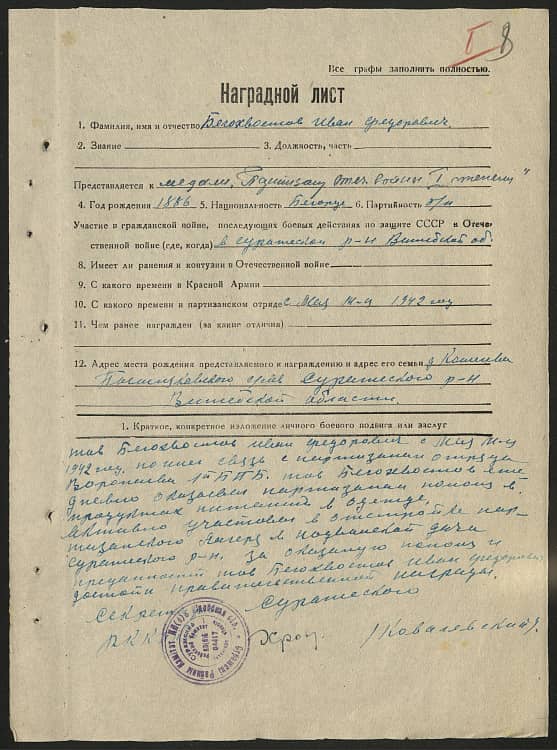 I 8
Все графы заполнить полностью.
Наградной лист
1. Фамилия, имя и отчество Бегохвостов Иван Федорович.
2. Звание 3. Должность, часть
Представляется к медали „Партизану отеч. войны I степени"
4. Год рождения 1886 5. Национальность Белорус 6. Партийность б/п
Участие в гражданской войне, последующих боевых действиях по защите СССР и Отече-
ственной войне (где, когда) в Суражском р-н Витебской об.
8. Имеет ли ранения и контузии в Отечественной войне
9. С какого времени в Красной Армии
10. С какого времени в партизанском отряде с Мая м-ца 1942 году
11. Чем ранее награжден (за какие отличия)
12. Адрес места рождения представляемого к награждению и адрес его семьи д.
Суражского р-н
Витебской области.
1. Краткое, конкретное изложение личного боевого подвига или заслуг
тов Бегохвостов Иван Федорович с Мая м-ца
1942 году, связь с партизанам отряда
1ой БПБ. тов Бегохвостов еже
дневно оказывал партизанам помощ в
продуктах питания и одежде.
Активно участвовал в пар-
тизанского лагеря в дачи
Суражского р-н. За оказаную помощ и
преданность тов Бегохвостов Иван Федорович
достоен правительственной награды.
Суражского
Ковалевский